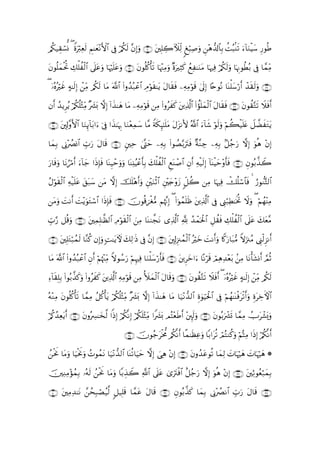 طُورِ سَيْنَاءَ تَنْبُتُ بِالدُّهْنِ وَصِبْغٍ لِلْآكِلِينَ ۝ وَإِنَّ لَكُمْ فِي الْأَنْعَامِ لَعِبْرَةً نُسْقِيكُمْ
مِمَّا فِي بُطُونِهَا وَلَكُمْ فِيهَا مَنَافِعُ كَثِيرَةٌ وَمِنْهَا تَأْكُلُونَ ۝ وَعَلَيْهَا وَعَلَى الْفُلْكِ تُحْمَلُونَ
۝ وَلَقَدْ أَرْسَلْنَا نُوحًا إِلَى قَوْمِهِ فَقَالَ يَا قَوْمِ اعْبُدُوا اللَّهَ مَا لَكُمْ مِنْ إِلَهٍ غَيْرُهُ
أَفَلَا تَتَّقُونَ ۝ فَقَالَ الْمَلَأُ الَّذِينَ كَفَرُوا مِنْ قَوْمِهِ مَا هَذَا إِلَّا بَشَرٌ مِثْلُكُمْ يُرِيدُ أَنْ
يَتَفَضَّلَ عَلَيْكُمْ وَلَوْ شَاءَ اللَّهُ لَأَنْزَلَ مَلَائِكَةً مَا سَمِعْنَا بِهَذَا فِي آبَائِنَا الْأَوَّلِينَ ۝
إِنْ هُوَ إِلَّا رَجُلٌ بِهِ جِنَّةٌ فَتَرَبَّصُوا بِهِ حَتَّى حِينٍ ۝ قَالَ رَبِّ انْصُرْنِي بِمَا
كَذَّبُونِ ۝ فَأَوْحَيْنَا إِلَيْهِ أَنِ اصْنَعِ الْفُلْكَ بِأَعْيُنِنَا وَوَحْيِنَا فَإِذَا جَاءَ أَمْرُنَا وَفَارَ
التَّنُّورُ فَاسْلُكْ فِيهَا مِنْ كُلٍّ زَوْجَيْنِ اثْنَيْنِ وَأَهْلَكَ إِلَّا مَنْ سَبَقَ عَلَيْهِ الْقَوْلُ
مِنْهُمْ وَلَا تُخَاطِبْنِي فِي الَّذِينَ ظَلَمُوا إِنَّهُمْ مُغْرَقُونَ ۝ فَإِذَا اسْتَوَيْتَ أَنْتَ وَمَنْ
مَعَكَ عَلَى الْفُلْكِ فَقُلِ الْحَمْدُ لِلَّهِ الَّذِي نَجَّانَا مِنَ الْقَوْمِ الظَّالِمِينَ ۝ وَقُلْ رَبِّ
أَنْزِلْنِي مُنْزَلًا مُبَارَكًا وَأَنْتَ خَيْرُ الْمُنْزِلِينَ ۝ إِنَّ فِي ذَلِكَ لَآيَاتٍ وَإِنْ كُنَّا لَمُبْتَلِينَ ۝
ثُمَّ أَنْشَأْنَا مِنْ بَعْدِهِمْ قَرْنًا آخَرِينَ ۝ فَأَرْسَلْنَا فِيهِمْ رَسُولًا مِنْهُمْ أَنِ اعْبُدُوا اللَّهَ مَا
لَكُمْ مِنْ إِلَهٍ غَيْرُهُ أَفَلَا تَتَّقُونَ ۝ وَقَالَ الْمَلَأُ مِنْ قَوْمِهِ الَّذِينَ كَفَرُوا وَكَذَّبُوا بِلِقَاءِ
الْآخِرَةِ وَأَتْرَفْنَاهُمْ فِي الْحَيَاةِ الدُّنْيَا مَا هَذَا إِلَّا بَشَرٌ مِثْلُكُمْ يَأْكُلُ مِمَّا تَأْكُلُونَ مِنْهُ
وَيَشْرَبُ مِمَّا تَشْرَبُونَ ۝ وَلَئِنْ أَطَعْتُمْ بَشَرًا مِثْلَكُمْ إِنَّكُمْ إِذًا لَخَاسِرُونَ ۝ أَيَعِدُكُمْ
أَنَّكُمْ إِذَا مِتُّمْ وَكُنْتُمْ تُرَابًا وَعِظَامًا أَنَّكُمْ مُخْرَجُونَ ۝
* هَيْهَاتَ هَيْهَاتَ لِمَا تُوعَدُونَ ۝ إِنْ هِيَ إِلَّا حَيَاتُنَا الدُّنْيَا نَمُوتُ وَنَحْيَا وَمَا نَحْنُ
بِمَبْعُوثِينَ ۝ إِنْ هُوَ إِلَّا رَجُلٌ افْتَرَى عَلَى اللَّهِ كَذِبًا وَمَا نَحْنُ لَهُ بِمُؤْمِنِينَ
۝ قَالَ رَبِّ انْصُرْنِي بِمَا كَذَّبُونِ ۝ قَالَ عَمَّا قَلِيلٍ لَيُصْبِحُنَّ نَادِمِينَ ۝